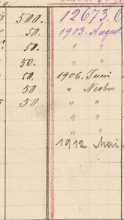 500. 12673.6
50. 1903. August
50. " "
50. " "
50. " "
50. 1906. Juni
50. " Novbr
50. " "
" "
1912 Mai